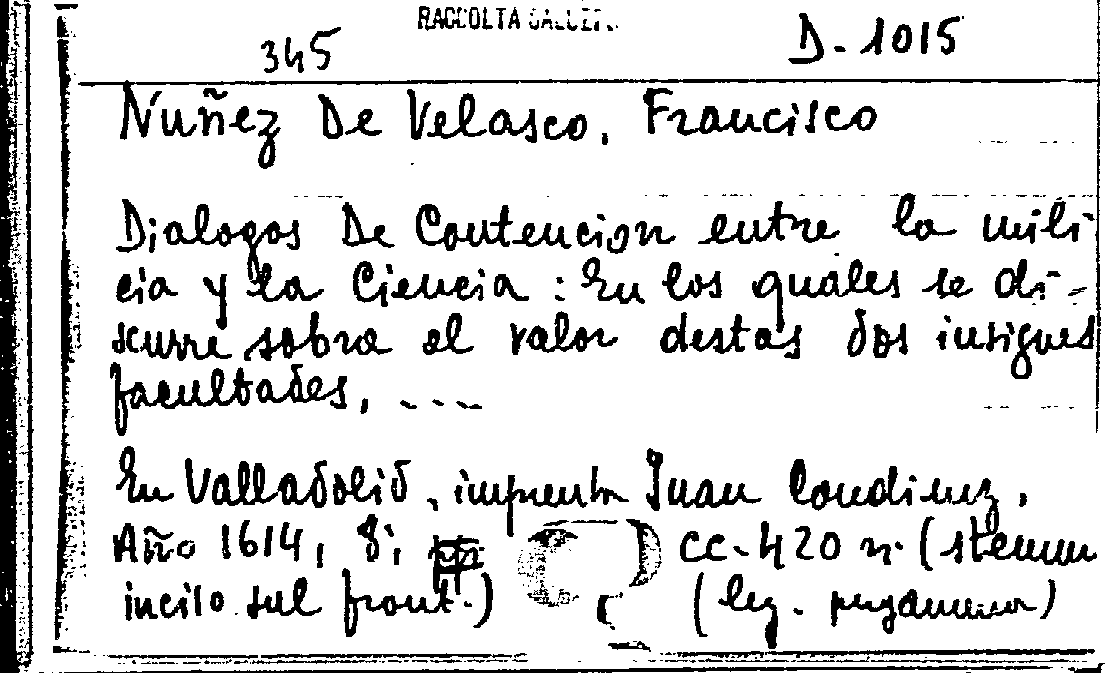 RACCOLTA
345 D-1015
Nuñez De Velasco, Francisco
Dialogos De Contencion entre la mili
cia y la Ciencia : En los quales se di-
scurre sobre el valor destas dos insignes
facultades, ----
En Valladolid, imprenta Juan
Año 1614, 8°, cc. 420 n. (stemma
inciso sul front.) (leg. pergamena)